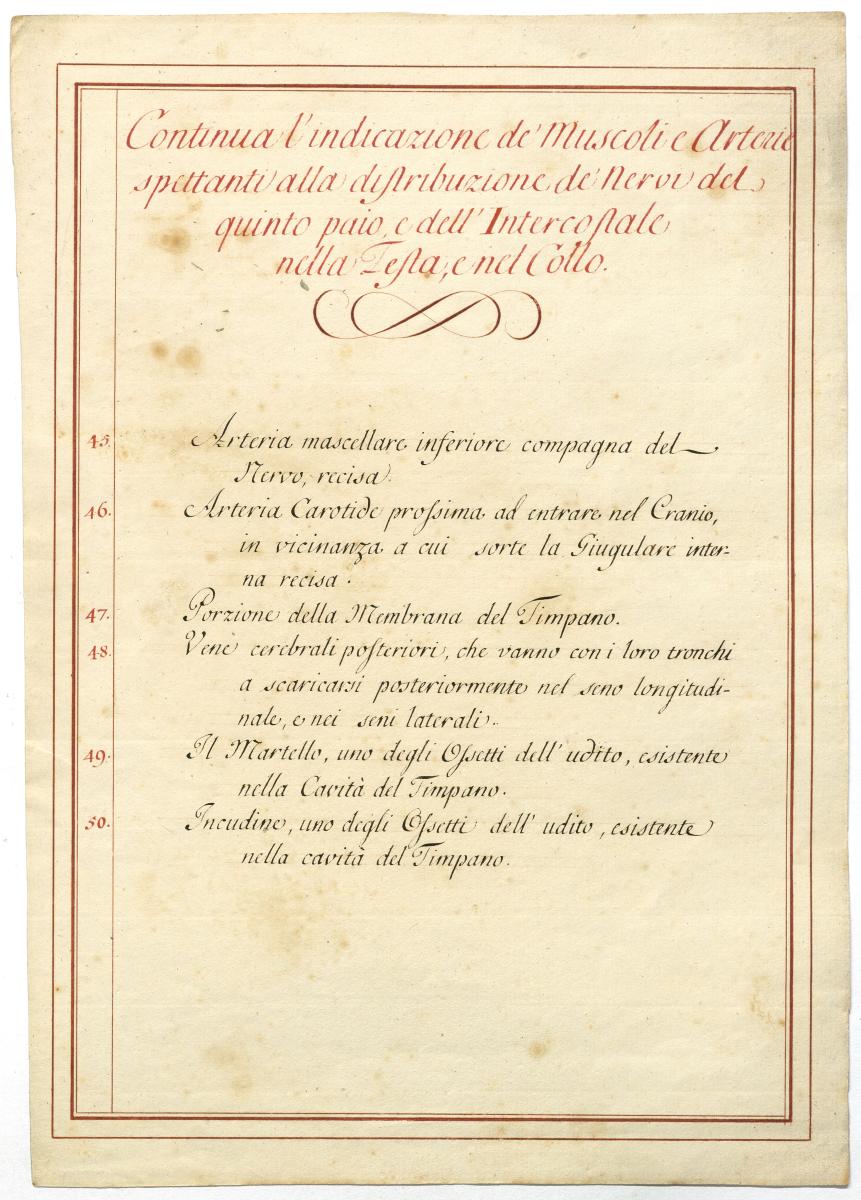 Continua l'indicazione de' Muscoli e Arterie
spettanti alla distribuzione de' Nervi del
quinto paio, e dell' Intercostale
nella Testa, e nel Collo.
45. Arteria mascellare inferiore compagna del
Nervo, recisa.
46. Arteria Carotide prossima ad entrare nel Cranio,
in vicinanza a cui sorte la Giugulare inter-
na recisa.
47. Porzione della Membrana del Timpano.
48. Vene cerebrali posteriori, che vanno con i loro tronchi
a scaricarsi posteriormente nel seno longitudi-
nale, e nei seni laterali.
49. Il Martello, uno degli Ossetti dell' udito, esistente
nella Cavità del Timpano.
50. Incudine, uno degli Ossetti dell' udito, esistente
nella cavità del Timpano.